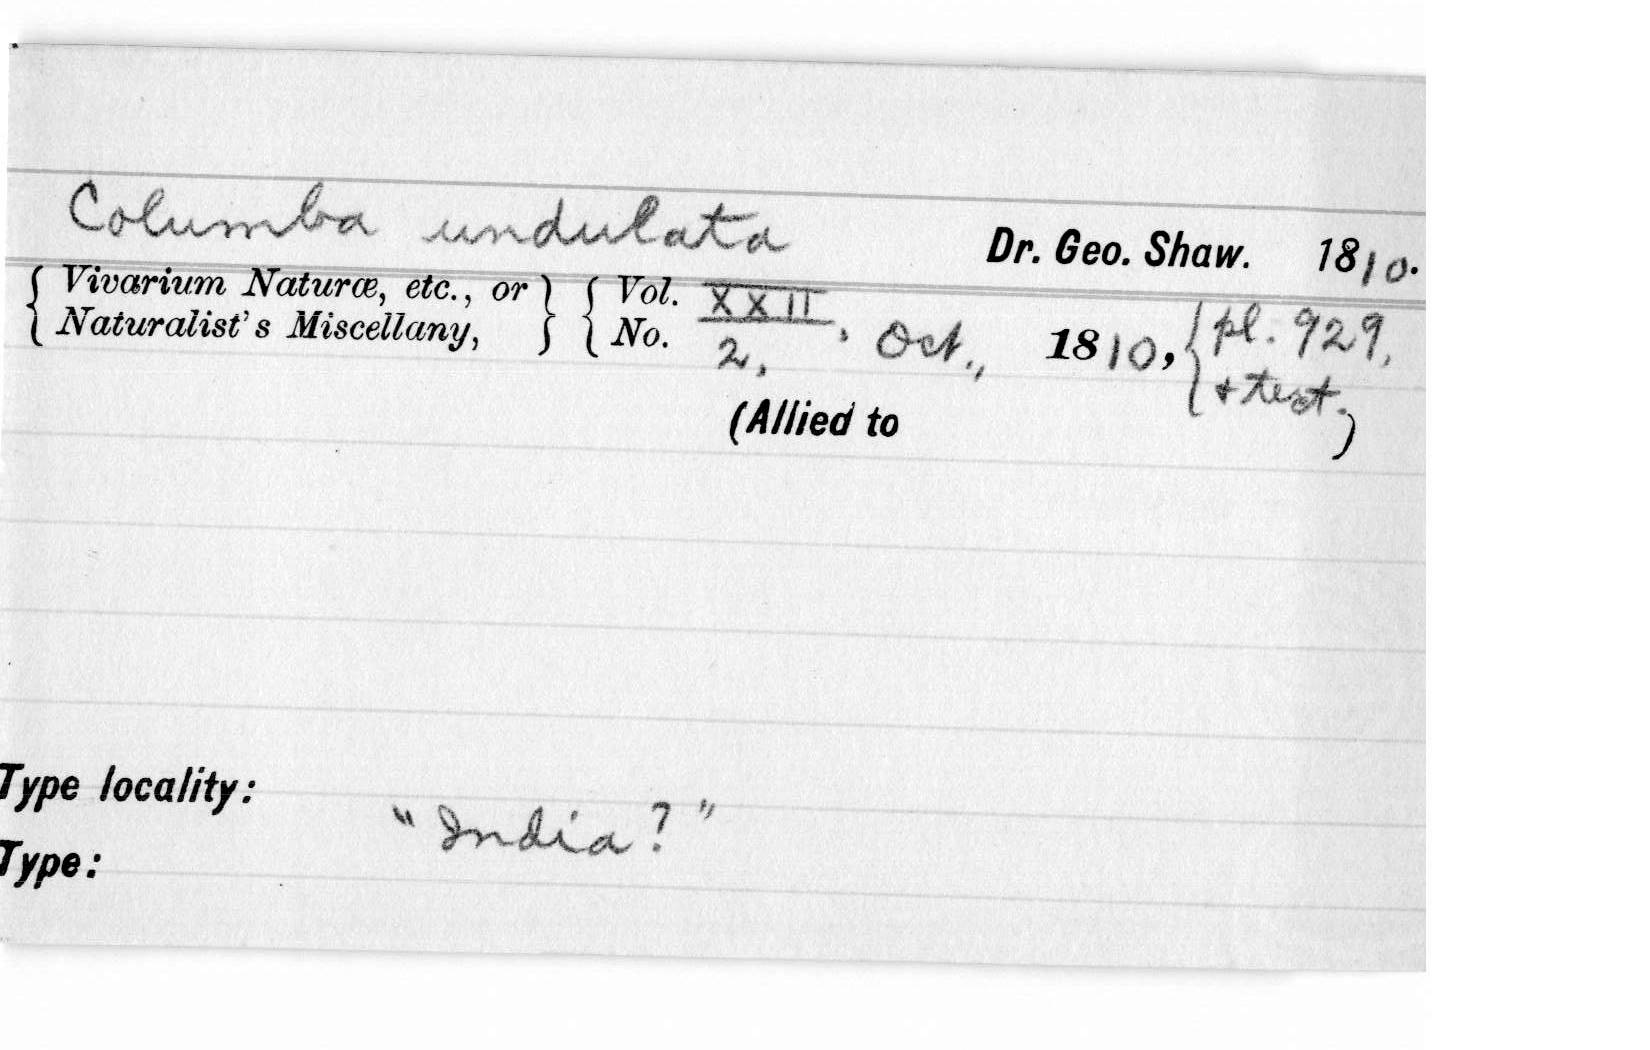 Columba undulata Dr. Geo. Shaw. 1810.
{ Vivarium Naturæ, etc., or } { Vol. XXII, Oct., 1810, { pl. 929,
{ Naturalist's Miscellany, } { No. 2, { + text.
(Allied to )
Type locality:
"India?"
Type: